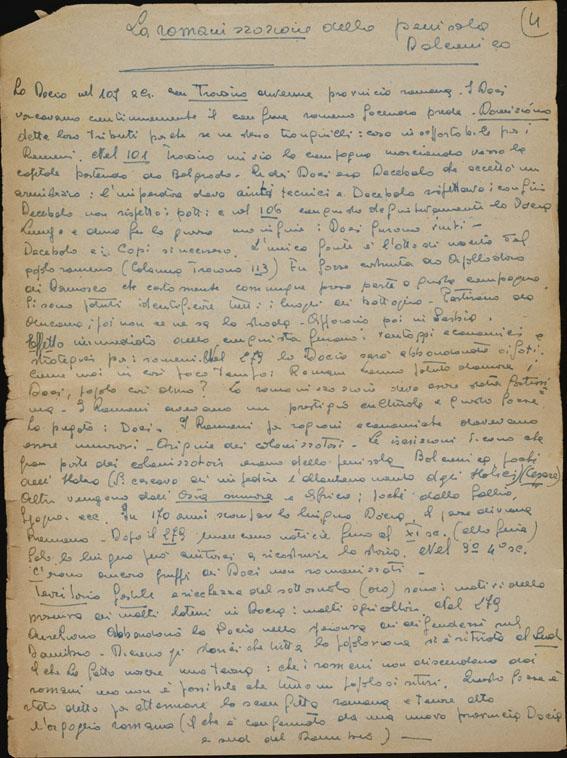 La romanizzazione della penisola
Balcanica
(4
La Dacia nel 107 a.C. con Traiano divenne provincia romana. I Daci
varcavano continuamente il confine romano facendo preda. Domiziano
dette loro tributi perché se ne stessero tranquilli: cosa insopportabile per i
Romani. Nel 101 Traiano iniziò la campagna marciando verso la
capitale partendo da Belgrado. Re dei Daci era Decebalo che accettò un
armistizio: l'imperatore dava aiuti tecnici e Decebalo rispettava i confini
Decebalo non rispettò i patti e nel 106 conquistò definitivamente la Dacia
Lunga e dura fu la guerra ma infine i Daci furono vinti -
Decebalo e i Capi si uccisero. L'unica fonte è l'atto di nascita del
popolo rumeno (Colonna Traiana 113) Fu fatta costruita da Apollodoro
di Damasco che certamente comunque prese parte a questa campagna
Si sono potuti identificare tutti i luoghi di battaglia - Partirono da
Ancona, poi non se ne sa la strada - Apparvero poi in Serbia.
Effetto immediato della conquista furono: vantaggi economici e
strategici per i romani. Nel 279 la Dacia sarà abbandonata
come mai in così poco tempo i Romani hanno potuto domare i
Daci, popolo così duro? La romanizzazione deve essere stata fortissi
ma - I Romani avevano un prestigio culturale e questo forse
ha piegato i Daci. I Romani per ragioni economiche dovevano
essere numerosi - Origine dei colonizzatori - Le iscrizioni dicono che
gran parte dei colonizzatori erano della penisola Balcanica pochi
dell'Italia (Si cercava di impedire l'allontanamento degli Italici) (Cesare)
Altri vengono dall'Asia minore e Africa; pochi dalla Gallia,
Spagna ecc. In 170 anni scomparve la lingua Daca. Il paese divenne
Romano - Dopo il 279 mancano notizie fino al XI sec. (alla fine)
Solo la lingua può aiutarci a ricostruire la storia. Nel 3° 4° sec.
c'erano ancora gruppi di Daci non romanizzati -
Territorio fertile e ricchezza del sottosuolo (oro) sono i motivi della
presenza di molti latini in Dacia: molti agricoltori. Nel 279
Aureliano abbandona la Dacia nella speranza di difendersi sul
Danubio - Dicono gli storici che tutta la popolazione si è ritirata al Sud
Il che ha fatto nascere una teoria: che i romeni non discendono dai
romani ma non è possibile che tutto un popolo si ritiri. Questo forse è
stato detto per attenuare la sconfitta romana e tenere alto
l'orgoglio romano (Il che è confermato da una nuova provincia Dacia
a sud del Danubio) -